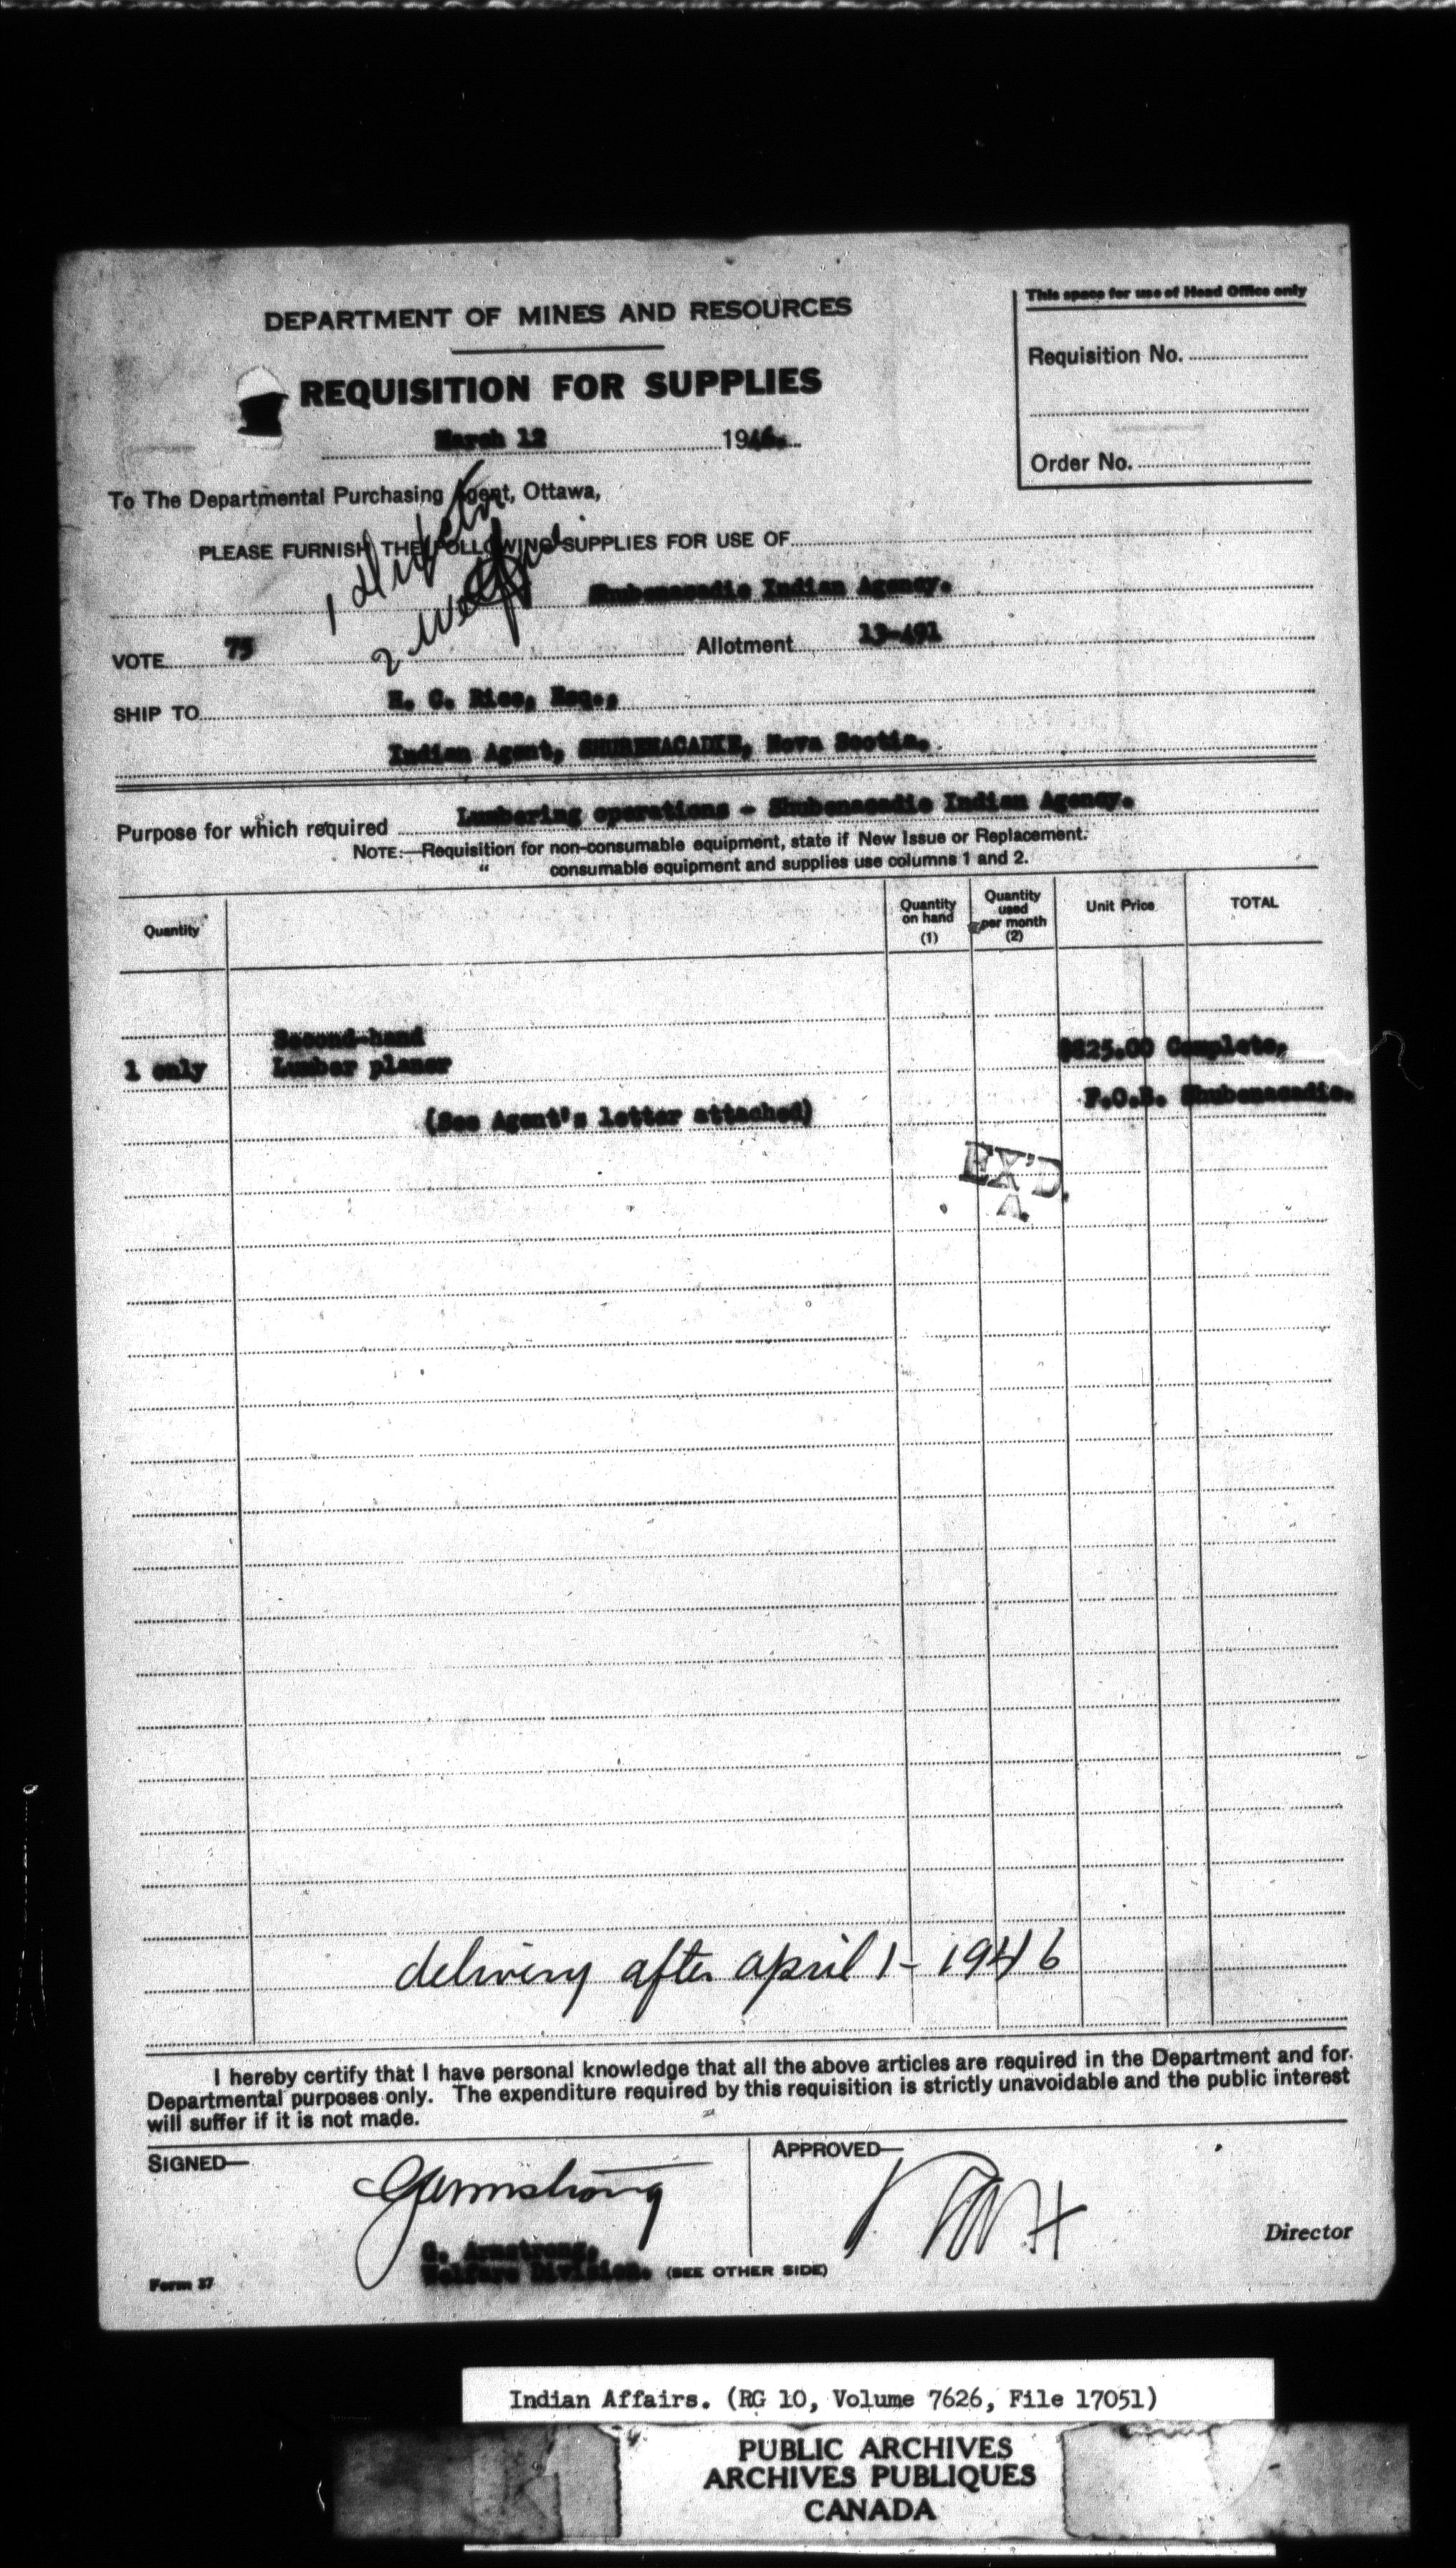 This space for use of Head Office only
DEPARTMENT OF MINES AND RESOURCES
Requisition No.
REQUISITION FOR SUPPLIES
March 12 1946.
Order No.
To The Departmental Purchasing Agent, Ottawa,
PLEASE FURNISH THE FOLLOWING SUPPLIES FOR USE OF
1
2
Shubenacadie Indian Agency.
VOTE 75 Allotment 13-491
SHIP TO H. C. Rice, Esq.,
Indian Agent, SHUBENACADIE, Nova Scotia.
Purpose for which required Lumbering operations - Shubenacadie Indian Agency.
NOTE:—Requisition for non-consumable equipment, state if New Issue or Replacement.
" consumable equipment and supplies use columns 1 and 2.
Quantity Quantity on hand (1) Quantity used per month (2) Unit Price TOTAL
Second-hand
1 only Lumber planer $625.00 Complete,
(See Agent's letter attached) F.O.B. Shubenacadie.
EX'D.
A.
delivery after april 1 - 1946
I hereby certify that I have personal knowledge that all the above articles are required in the Department and for
Departmental purposes only. The expenditure required by this requisition is strictly unavoidable and the public interest
will suffer if it is not made.
SIGNED— APPROVED—
GArmstrong
Director
G. Armstrong,
Welfare Division. (SEE OTHER SIDE)
Form 27
Indian Affairs. (RG 10, Volume 7626, File 17051)
PUBLIC ARCHIVES
ARCHIVES PUBLIQUES
CANADA